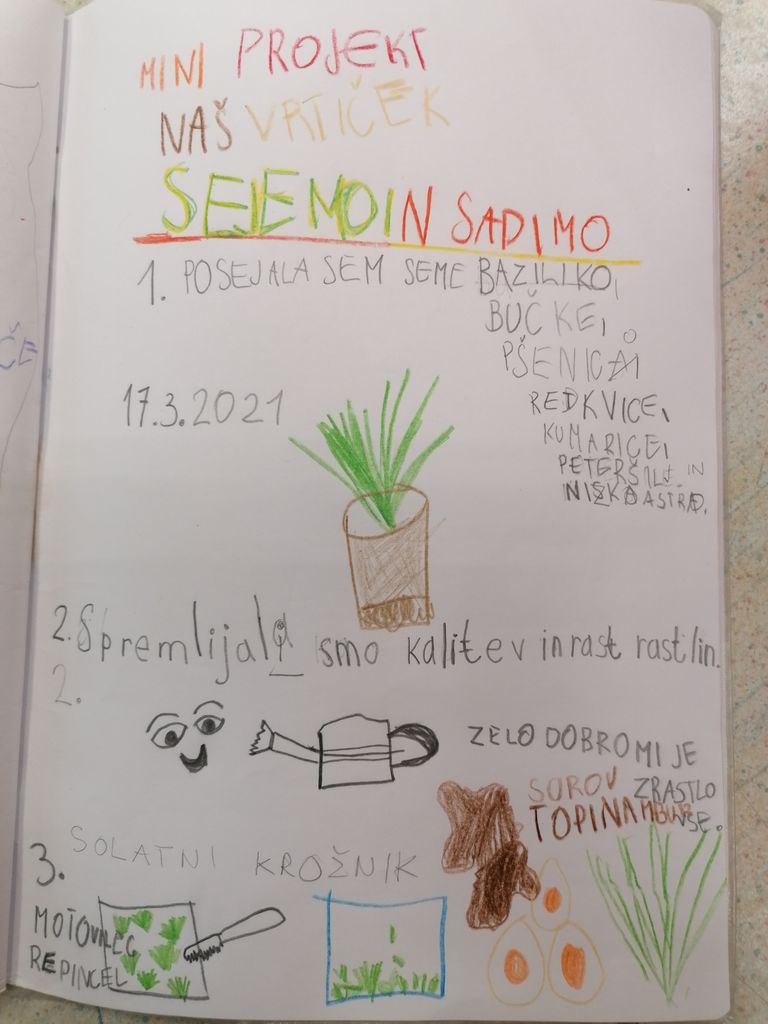 MINI PROJEKT
NAŠ VRTIČEK
SEJEMO IN SADIMO
1. POSEJALA SEM SEME BAZILIKO,
BUČKE,
PŠENICA,
17.3.2021
REDKVICE,
KUMARICE,
PETERŠILJ IN
NIZKA ASTRA.
2. Spremlijala smo kalitev in rast rastlin.
2.
ZELO DOBRO MI JE
ZRASTLO
VSE.
SUROV
TOPINAMBUR
3. SOLATNI KROŽNIK
MOTOVILEC
REPINCEL
ČE